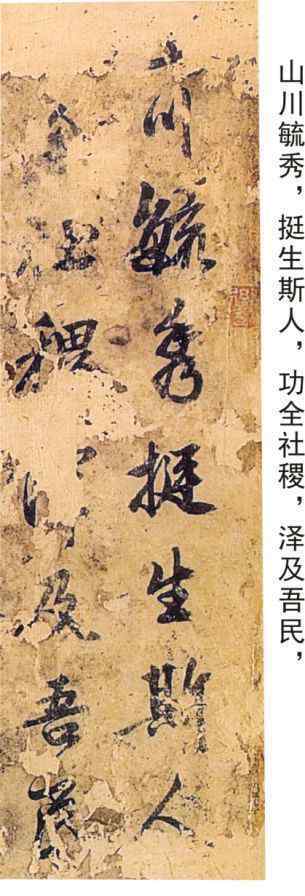 山川毓秀，挺生斯人，功全社稷，泽及吾民，
山川毓秀挺生斯人
全社稷及吾民